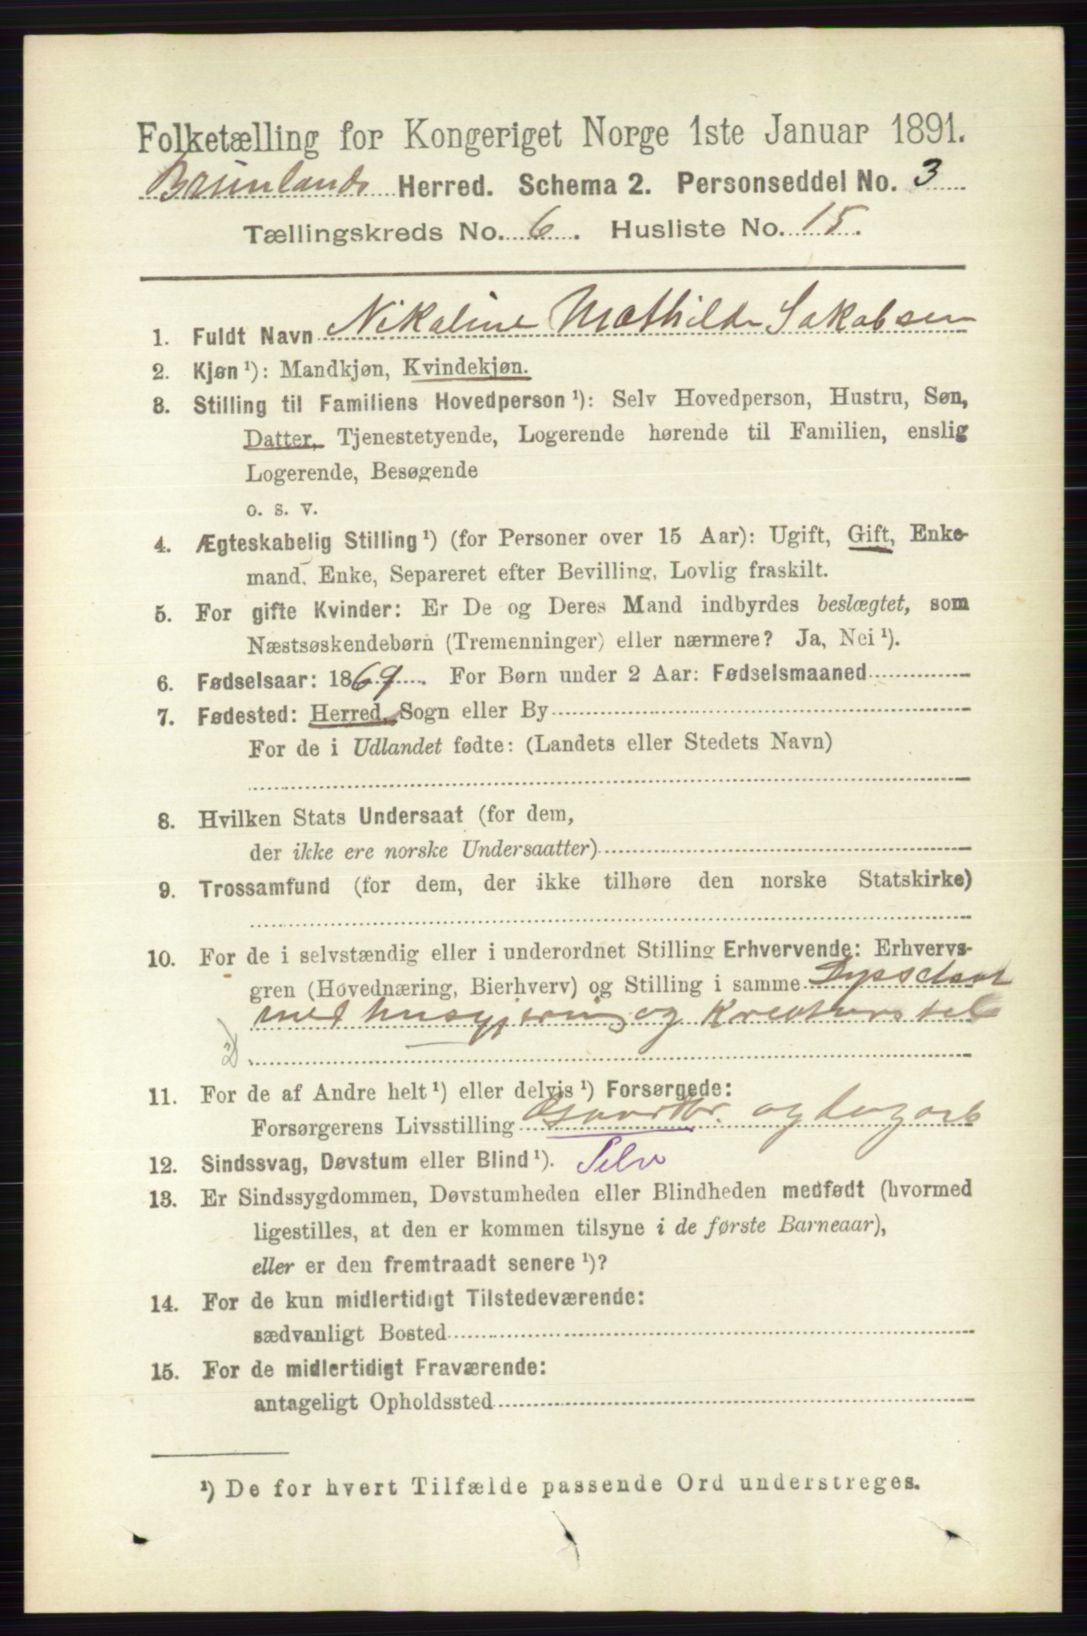 Folketælling for Kongeriget Norge 1ste Januar 1891.
Brunlands Herred. Schema 2. Personseddel No. 3
Tællingskreds No. 6. Husliste No. 15.
1. Fuldt Navn Nikoline Mathilde Jakobsen
2. Kjøn ¹): Mandkjøn, Kvindekjøn.
3. Stilling til Familiens Hovedperson ¹): Selv Hovedperson, Hustru, Søn,
Datter, Tjenestetyende, Logerende hørende til Familien, enslig
Logerende, Besøgende
o. s. v.
4. Ægteskabelig Stilling ¹) (for Personer over 15 Aar): Ugift, Gift, Enke-
mand, Enke, Separeret efter Bevilling, Lovlig fraskilt.
5. For gifte Kvinder: Er De og Deres Mand indbyrdes beslægtet, som
Næstsøskendebørn (Tremenninger) eller nærmere? Ja, Nei ¹).
6. Fødselsaar: 1869. For Børn under 2 Aar: Fødselsmaaned
7. Fødested: Herred, Sogn eller By
For de i Udlandet fødte: (Landets eller Stedets Navn)
8. Hvilken Stats Undersaat (for dem,
der ikke ere norske Undersaatter)
9. Trossamfund (for dem, der ikke tilhøre den norske Statskirke)
10. For de i selvstændig eller i underordnet Stilling Erhvervende: Erhvervs-
gren (Hovednæring, Bierhverv) og Stilling i samme Sysselsat
med husgjerning og Kreaturstel
11. For de af Andre helt ¹) eller delvis ¹) Forsørgede:
Forsørgerens Livsstilling og dagarb
12. Sindssvag, Døvstum eller Blind ¹). Selv
13. Er Sindssygdommen, Døvstumheden eller Blindheden medfødt (hvormed
ligestilles, at den er kommen tilsyne i de første Barneaar),
eller er den fremtraadt senere ¹)?
14. For de kun midlertidigt Tilstedeværende:
sædvanligt Bosted
15. For de midlertidigt Fraværende:
antageligt Opholdssted
¹) De for hvert Tilfælde passende Ord understreges.